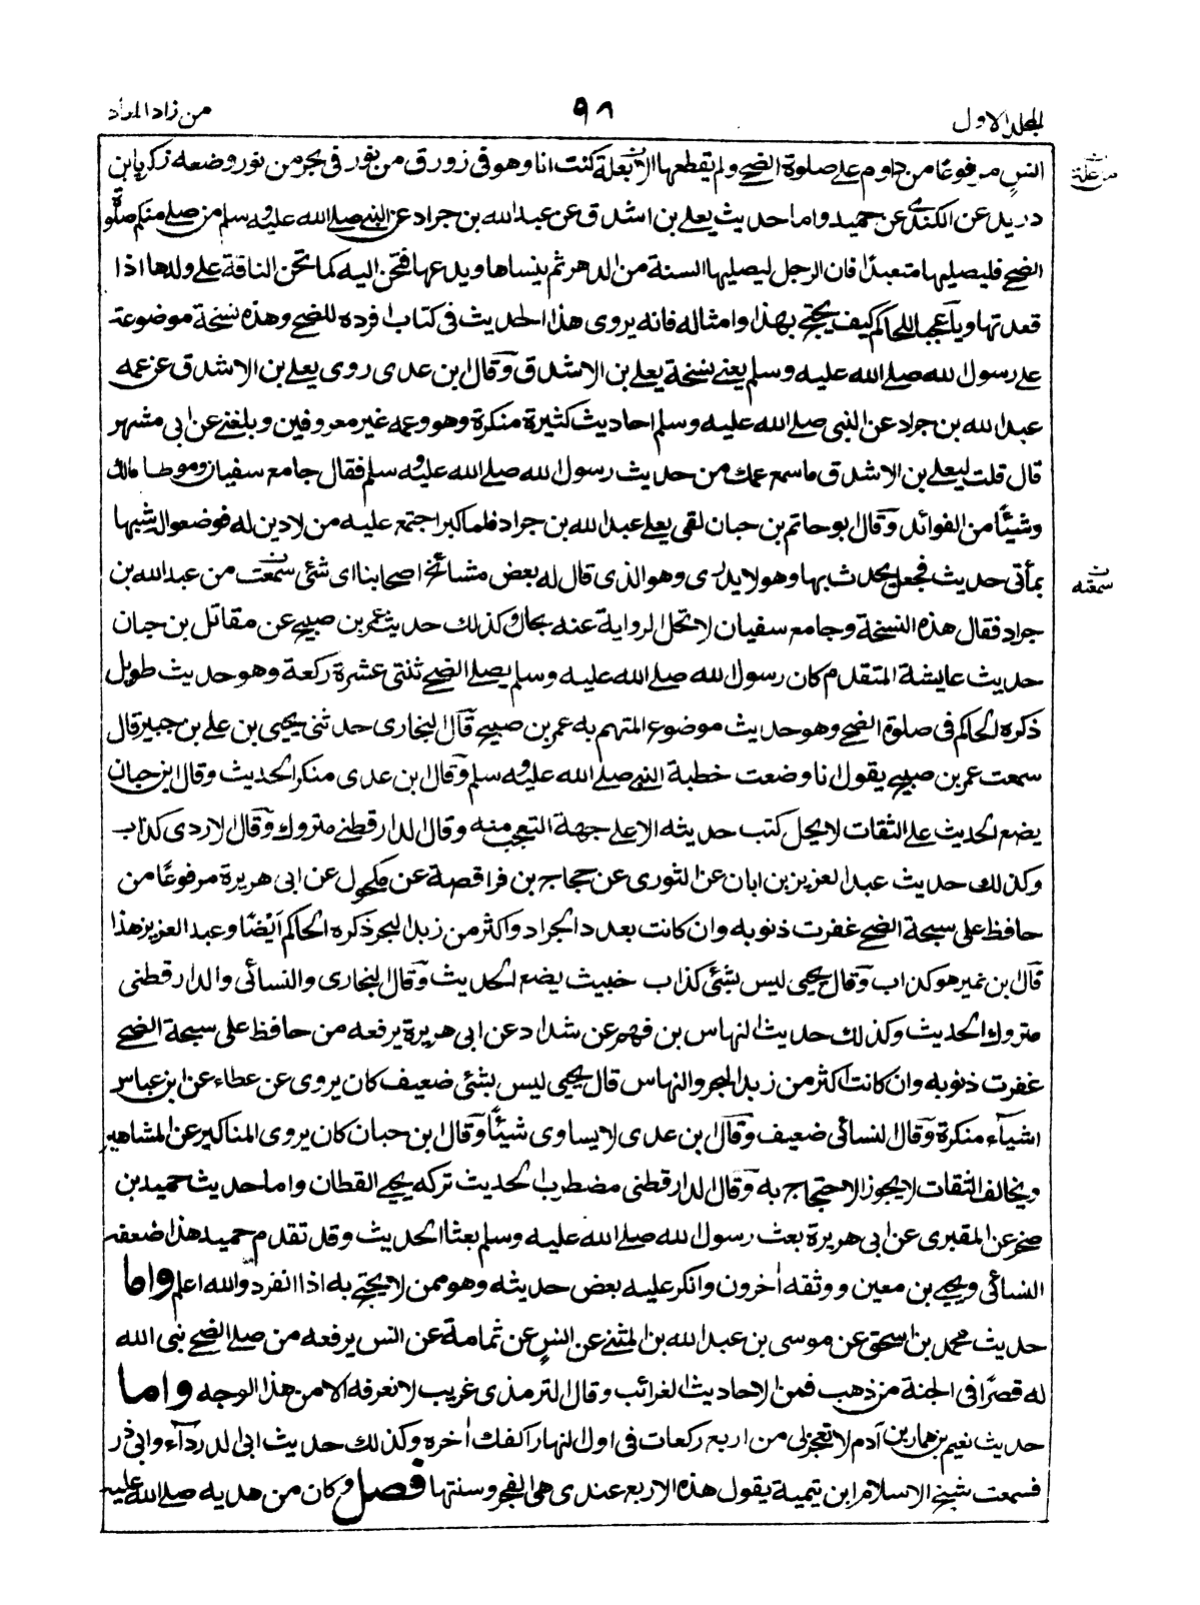 المجلد الاول
٩٨
من زاد المعاد
انس مرفوعًا من داوم على صلوة الضحى ولم يقطعها الا بعلة كنت انا وهو فى زورق من نور فى بحر من نور وضعه زكريا بن
من علة
دريد عن الكندى عن حميد واما حديث يعلى بن اشدق عن عبد الله بن جراد عن النبى صلى الله عليه وسلم من صلى منكم صلوة
الضحى فليصليها متعبدًا فان الرجل ليصليها السنة من الدهر ثم ينساها ويدعها فتحن اليه كما تحن الناقة على ولدها اذا
فقدتها ويا عجبا للحاكم كيف يحتج بهذا وامثاله فانه يروى هذا الحديث فى كتاب افرده للضحى وهذه نسخة موضوعة
على رسول الله صلى الله عليه وسلم يعنى نسخة يعلى بن الاشدق وقال ابن عدى روى يعلى بن الاشدق عن عمه
عبد الله بن جراد عن النبى صلى الله عليه وسلم احاديث كثيرة منكرة وهو وعمه غير معروفين وبلغنى عن ابى مشهر
قال قلت ليعلى بن الاشدق ما سمع عمك من حديث رسول الله صلى الله عليه وسلم فقال جامع سفيان وموطا مالك
وشيئًا من الفوائد وقال ابو حاتم بن حبان لقى يعلى عبد الله بن جراد فلما كبر اجتمع عليه من لا دين له فوضعوا له شبها
بمأتى حديث فجعل يحدث بها وهو لا يدرى وهو الذى قال له بعض مشائخ اصحابنا اى شئى سمعت من عبد الله بن
سمعته
جراد فقال هذه النسخة وجامع سفيان لا تحل الرواية عنه بحال وكذلك حديث عمر بن صبيح عن مقاتل بن حبان
حديث عايشة المتقدم كان رسول الله صلى الله عليه وسلم يصلى الضحى ثنتى عشرة ركعة وهو حديث طويل
ذكره الحاكم فى صلوة الضحى وهو حديث موضوع المتهم به عمر بن صبيح قال البخارى حدثنى يحيى بن على بن جبير قال
سمعت عمر بن صبيح يقول انا وضعت خطبة النبى صلى الله عليه وسلم وقال ابن عدى منكر الحديث وقال ابن حبان
يضع الحديث على الثقات لا يحل كتب حديثه الا على جهة التعجب منه وقال الدارقطنى متروك وقال الازدى كذاب
وكذلك حديث عبد العزيز بن ابان عن الثورى عن حجاج بن فراقصة عن مكحول عن ابى هريرة مرفوعًا من
حافظ على سبحة الضحى غفرت ذنوبه وان كانت بعدد الجراد واكثر من زبد البحر ذكره الحاكم ايضًا وعبد العزيز هذا
قال ابن نمير هو كذاب وقال يحيى ليس بشئى كذاب خبيث يضع الحديث وقال البخارى والنسائى والدارقطنى
متروك الحديث وكذلك حديث النهاس بن فهم عن شداد عن ابى هريرة يرفعه من حافظ على سبحة الضحى
غفرت ذنوبه وان كانت اكثر من زبد البحر والنهاس قال يحيى ليس بشئى ضعيف كان يروى عن عطاء عن ابن عباس
اشيآء منكرة وقال النسائى ضعيف وقال ابن عدى لا يساوى شيئًا وقال ابن حبان كان يروى المناكير عن المشاهير
ويخالف الثقات لا يجوز الاحتجاج به وقال الدارقطنى مضطرب الحديث تركه يحيى القطان واما حديث حميد بن
صخر عن المقبرى عن ابى هريرة بعث رسول الله صلى الله عليه وسلم بعثا الحديث وقد تقدم حميد هذا ضعفه
النسائى ويحيى بن معين ووثقه اٰخرون وانكر عليه بعض حديثه وهو ممن لا يحتج به اذا انفرد والله اعلم واما
حديث محمد بن اسحق عن موسى بن عبد الله بن المثنى عن انس عن ثمامة عن انس يرفعه من صلى الضحى بنى الله
له قصرًا فى الجنة من ذهب فمن الاحاديث الغرائب وقال الترمذى غريب لا نعرفه الا من هذا الوجه واما
حديث نعيم بن همار بن آدم لا تعجز لى من اربع ركعات فى اول النهار اكفك اٰخره وكذلك حديث ابى الدردآء وابى ذر
فسمعت شيخ الاسلام ابن تيمية يقول هذه الاربع عندى هى الفجر وسنتها فصل وكان من هديه صلى الله عليه